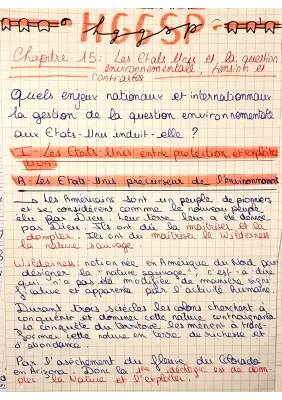 HGGSP
hggsp
Chapitre 15: Les Etats-Unis et la question
environnementale, tension et
contrastes
Quels enjeux nationaux et internationaux
la gestion de la question environnementale
aux Etats-Unis induit-elle ?
I- Les Etats-Unis entre protection et exploita
tion
A- Les Etats-Unis précurseur de l'environnement
→ Les Américains sont un peuple de pionniers
et se considèrent comme le nouveau peuple
élu par Dieu. Leur terre leur a été donnée
par Dieu. Ils ont dû la maîtriser et la
dompter. Ils ont dû maîtriser le Wilderness
la nature sauvage.
Wilderness: notion née en Amérique du Nord pour
désigner la "nature sauvage", c'est-à-dire
qui n'a pas été modifiée de manière signi-
ficative et apparente par l'activité humaine.
Durant trois siècles les colons cherchent à
conquérir et dominer cette nature contraignante
la conquête du territoire les mènent à trans-
former cette nature en terre de richesse et
d'abondance.
Par l'assèchement du fleuve du Colorado
en Arizona. Donc la 1ère idéologie est de dom-
pter la Nature et l'exploiter.